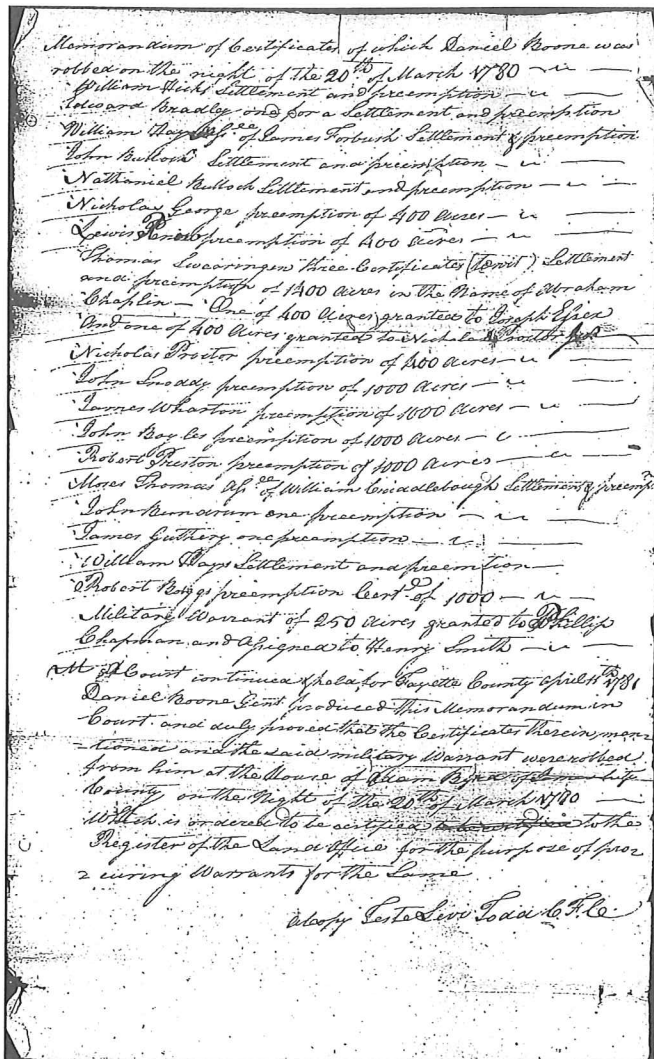 Memorandum of Certificates of which Daniel Boone was
robbed on the night of the 20th of March 1780
William Hicks Settlement and preemption
Edward Bradley one for a Settlement and preemption
William Hays Assee of James Forbush Settlement & preemption
John Bullock Settlement and preemption
Nathaniel Bullock Settlement and preemption
Nicholas George preemption of 400 acres
Lewis preemption of 400 acres
Thomas Swearingen three Certificates (towit) Settlement
and preemption of 1400 acres in the Name of Abraham
Chaplin - One of 400 Acres granted to Joseph
And one of 400 Acres granted to Nicholas Proctor
Nicholas Proctor preemption of 400 acres
John Snoddy preemption of 1000 Acres
James Wharton preemption of 1000 acres
John Boyles preemption of 1000 acres
Robert Preston preemption of 1000 acres
Moses Thomas Assee of William Criddlebough Settlement & preempn
John Bundrum one preemption
James Guthery one preemption
William Hays Settlement and preemption
Robert Boggs preemption Cert of 1000
Military Warrant of 250 acres granted to Phillip
Chapman and Assigned to Henry Smith
At a Court continued & held for Fayette County April 11th 1781
Daniel Boone Gent. produced this Memorandum in
Court and duly proved that the Certificates therein, men-
-tioned and the said military Warrant were robbed
from him at the House of Adam of James City
County on the Night of the 20th of March 1780
Which is ordered to be certified to be certified to the
Register of the Land Office for the purpose of pro=
=curing Warrants for the Same
a Copy Teste Levi Todd C.F.C.